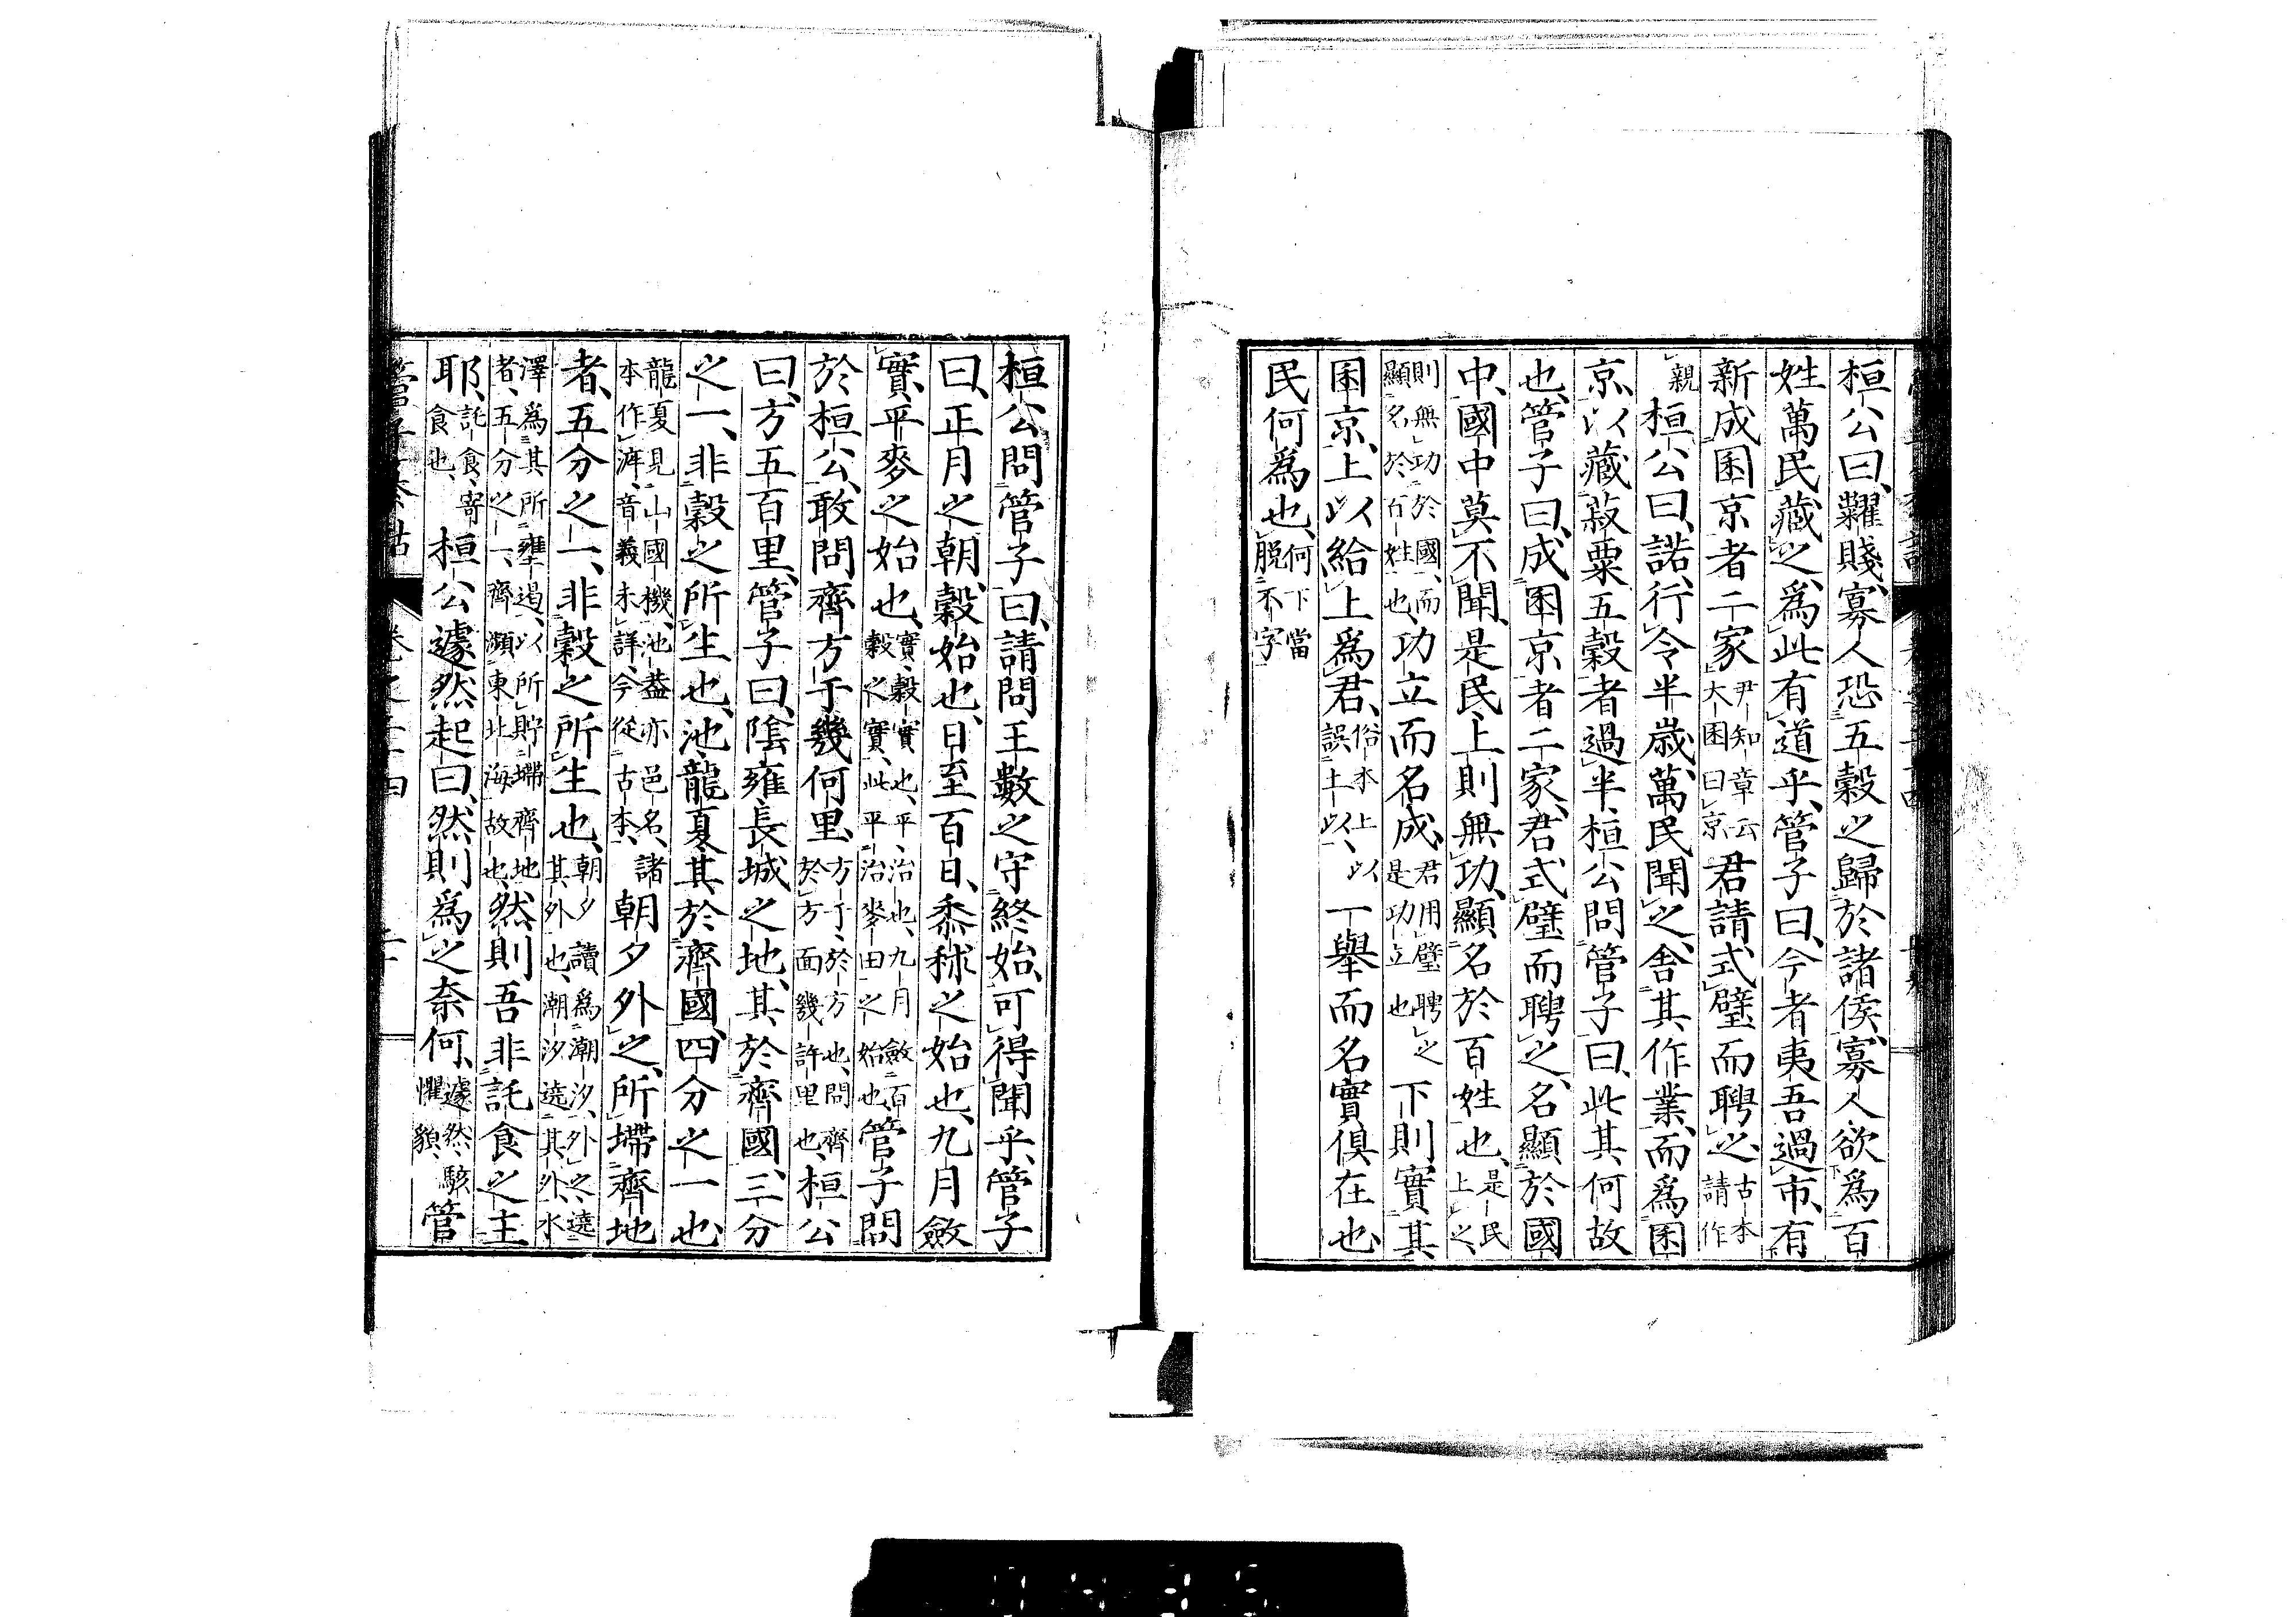 桓公曰、糶賤、寡人恐五穀之歸於諸侯、寡人欲爲百
姓萬民藏之、爲此有道乎、管子曰、今者夷吾過市、有
新成囷京者二家、尹知章云大囷曰京君請式璧而聘之、古本請作
親桓公曰、諾、行令半歲、萬民聞之、舍其作業、而爲囷
京、以藏菽粟五穀者過半、桓公問管子曰、此其何故
也、管子曰、成囷京者二家、君式璧而聘之、名顯於國
中、國中莫不聞、是民上則無功、顯名於百姓也、是民上之、
則無功於國、而顯名於百姓也、功立而名成、君用璧聘之是功立也下則實其
囷京、上以給上爲君、俗本上以誤土以、一擧而名實俱在也、
民何爲也、何下當脱不字
桓公問管子曰、請問王數之守終始、可得聞乎、管子
曰、正月之朝、穀始也、日至百日、黍秫之始也、九月斂
實、平麥之始也、實、穀實也、平、治也、九月斂百穀之實、此平治麥田之始也、管子問
於桓公、敢問齊方于幾何里、方于、於方也、問齊於方面幾許里也、桓公
曰、方五百里、管子曰、陰雍長城之地、其於齊國、三分
之一、非穀之所生也、池龍夏、其於齊國、四分之一也、
龍夏見山國機、池蓋亦邑名、諸本作澥、音義未詳、今從古本、朝夕外之、所墆齊地
者、五分之一、非穀之所生也、朝夕讀爲潮汐、外之、遶其外也、潮汐遶其外、水
澤爲其所壅遏、以所貯墆齊地者、五分之一、齊瀕東北海故也、然則吾非託食之主
耶、託食、寄食也、桓公遽然起曰、然則爲之奈何、遽然、駭懼貌、管